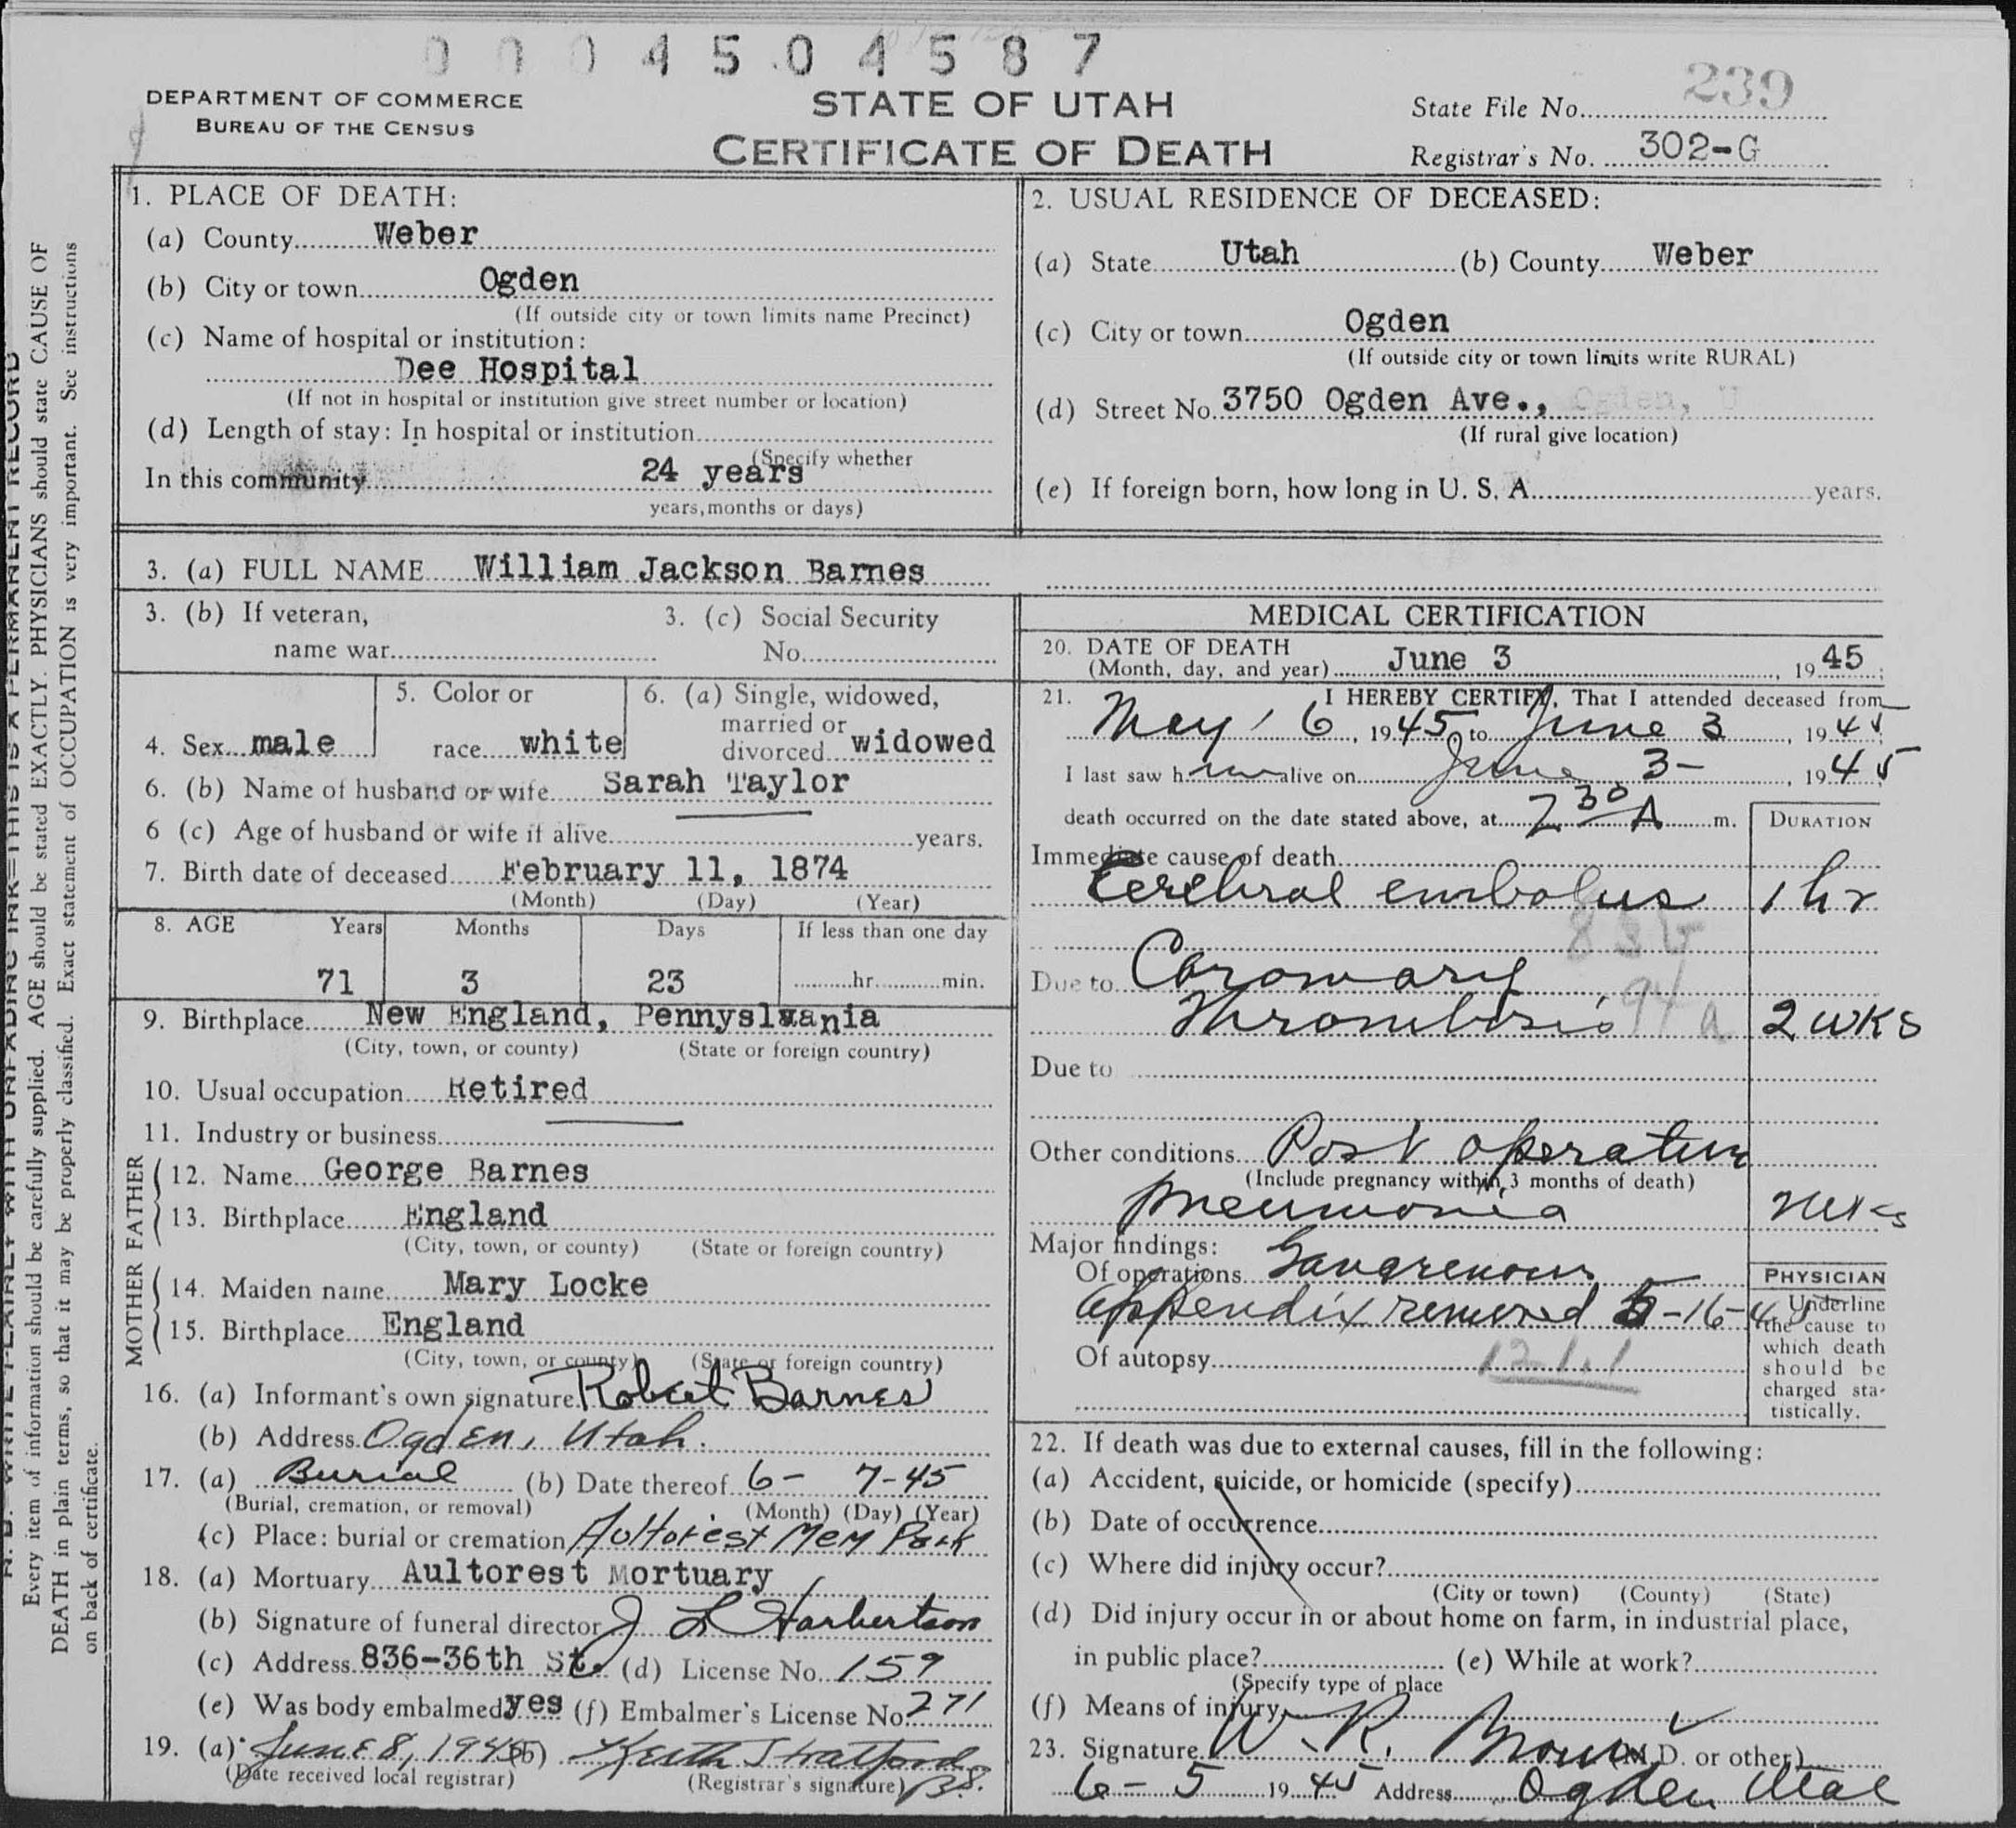 0004504587
239
DEPARTMENT OF COMMERCE
BUREAU OF THE CENSUS
STATE OF UTAH
CERTIFICATE OF DEATH
State File No.
Registrar's No. 302-G
Every item of information should be carefully supplied. AGE should be stated EXACTLY. PHYSICIANS should state CAUSE OF
DEATH in plain terms, so that it may be properly classified. Exact statement of OCCUPATION is very important. See instructions
on back of certificate.
1. PLACE OF DEATH:
(a) County Weber
(b) City or town Ogden
(If outside city or town limits name Precinct)
(c) Name of hospital or institution:
Dee Hospital
(If not in hospital or institution give street number or location)
(d) Length of stay: In hospital or institution
(Specify whether
In this community 24 years
years, months or days)
2. USUAL RESIDENCE OF DECEASED:
(a) State Utah (b) County Weber
(c) City or town Ogden
(If outside city or town limits write RURAL)
(d) Street No. 3750 Ogden Ave., Ogden, U
(If rural give location)
(e) If foreign born, how long in U. S. A. years.
3. (a) FULL NAME William Jackson Barnes
3. (b) If veteran,
name war
3. (c) Social Security
No.
4. Sex male
5. Color or
race white
6. (a) Single, widowed,
married or
divorced widowed
6. (b) Name of husband or wife Sarah Taylor
6 (c) Age of husband or wife if alive years.
7. Birth date of deceased February 11, 1874
(Month) (Day) (Year)
8. AGE Years Months Days If less than one day
71 3 23 hr. min.
9. Birthplace New England, Pennyslvania
(City, town, or county) (State or foreign country)
10. Usual occupation Retired
11. Industry or business
FATHER
12. Name George Barnes
13. Birthplace England
(City, town, or county) (State or foreign country)
MOTHER
14. Maiden name Mary Locke
15. Birthplace England
(City, town, or county) (State or foreign country)
16. (a) Informant's own signature Robert Barnes
(b) Address Ogden, Utah.
17. (a) Burial (b) Date thereof 6- 7-45
(Burial, cremation, or removal) (Month) (Day) (Year)
(c) Place: burial or cremation Aultorest Mem Park
18. (a) Mortuary Aultorest Mortuary
(b) Signature of funeral director J L Harbertson
(c) Address 836-36th St. (d) License No. 159
(e) Was body embalmed yes (f) Embalmer's License No. 271
19. (a) June 8, 1945 (b) Keith Stratford
(Date received local registrar) (Registrar's signature) BS.
MEDICAL CERTIFICATION
20. DATE OF DEATH
(Month, day, and year) June 3, 1945;
21. I HEREBY CERTIFY, That I attended deceased from
May 6, 1945 to June 3, 1945
I last saw him alive on June 3-, 1945
death occurred on the date stated above, at 2 30 A m.
DURATION
Immediate cause of death
Cerebral embolus 1 hr
83b
Due to Coronary
Thrombosis 94 a 2 wks
Due to
Other conditions Post operative
(Include pregnancy within 3 months of death)
pneumonia 2 wks
Major findings:
Of operations Gangrenous
appendix removed 5-16-45
Of autopsy 121.1
PHYSICIAN
Underline
the cause to
which death
should be
charged sta-
tistically.
22. If death was due to external causes, fill in the following:
(a) Accident, suicide, or homicide (specify)
(b) Date of occurrence
(c) Where did injury occur?
(City or town) (County) (State)
(d) Did injury occur in or about home on farm, in industrial place,
in public place? (e) While at work?
(Specify type of place
(f) Means of injury
23. Signature W. R. Brown (M.D. or other)
6-5 1945 Address Ogden Utah